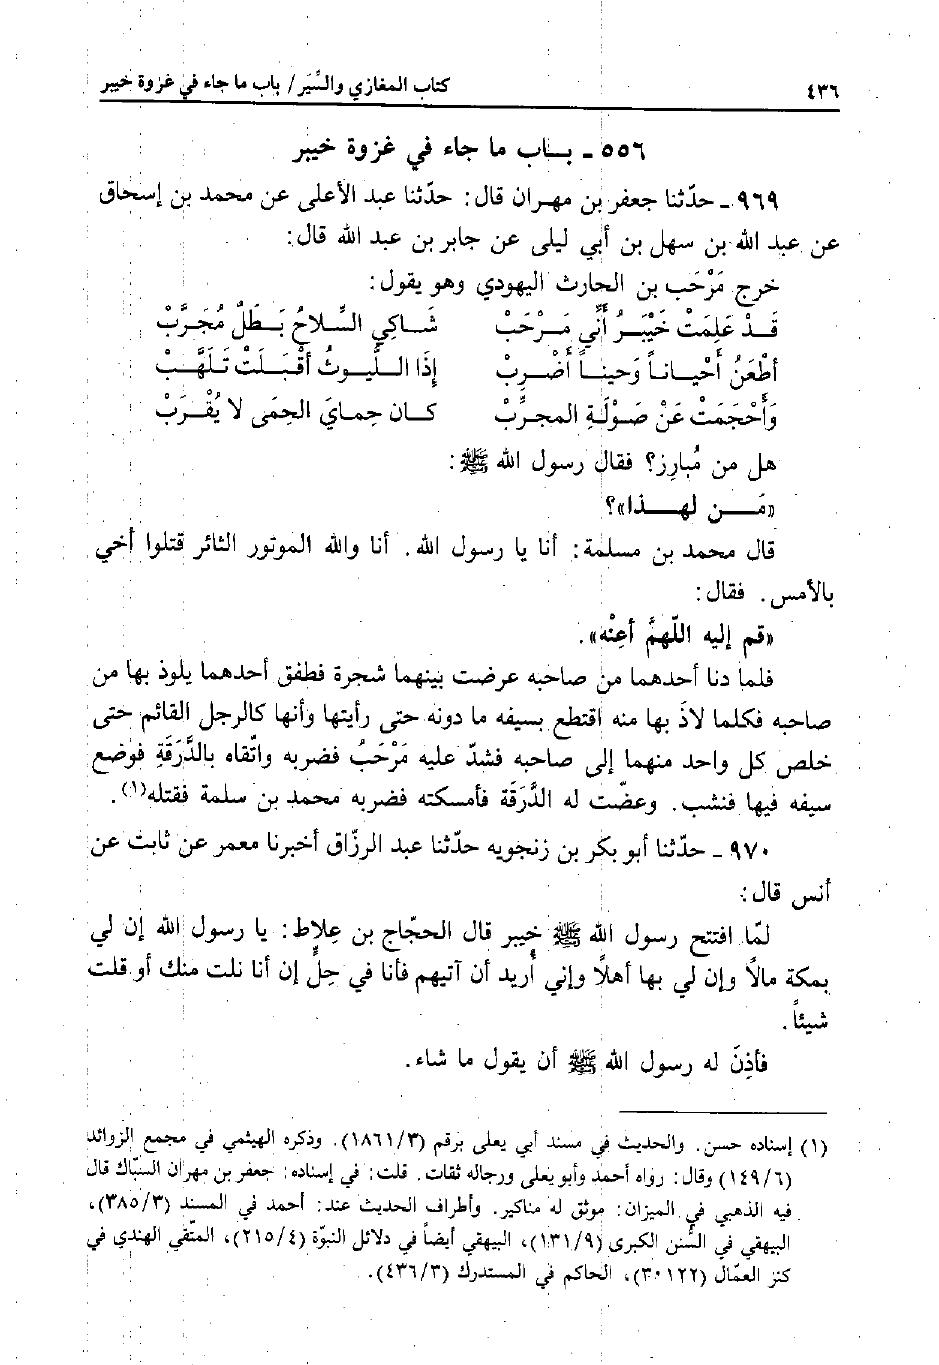 ٤٣٦ كتاب المغازي والسِّيَر/ باب ما جاء في غزوة خيبر
٥٥٦ ـ بـاب ما جاء في غزوة خيبر
٩٦٩ ـ حدّثنا جعفر بن مهران قال: حدّثنا عبد الأعلى عن محمد بن إسحاق
عن عبد الله بن سهل بن أبي ليلى عن جابر بن عبد الله قال:
خرج مَرْحَب بن الحارث اليهودي وهو يقول:
قَـدْ عَلِمَتْ خَيْبَـرُ أَنِّي مَـرْحَبْ شَـاكِي السِّلاحُ بَـطَلٌ مُجَرَّبْ
أطْعَنُ أَحْيـانـاً وَحينـاً أَضْـرِبْ إِذَا اللُّيـوثُ أقْبَـلَتْ تَـلَهَّـبْ
وَأَحْجَمَتْ عَنْ صَـوْلَـةِ المجرَّبْ كـان حِمـايَ الحِمَى لا يُقْـرَبْ
هل من مُبارِز؟ فقال رسول الله ﷺ:
«مَـن لهـذا»؟
قال محمد بن مسلمة: أنا يا رسول الله. أنا والله الموتور الثائر قتلوا أخي
بالأمس. فقال:
«قم إليه اللّهمَّ أعِنْه».
فلما دنا أحدهما من صاحبه عرضت بينهما شجرة فطفق أحدهما يلوذ بها من
صاحبه فكلما لاذَ بها منه اقتطع بسيفه ما دونه حتى رأيتها وأنها كالرجل القائم حتى
خلص كل واحد منهما إلى صاحبه فشدّ عليه مَرْحَبُ فضربه واتّقاه بالدَّرَقَةِ فوضع
سيفه فيها فنشب. وعضّت له الدَّرَقة فأمسكته فضربه محمد بن سلمة فقتله(١).
٩٧٠ ـ حدّثنا أبو بكر بن زنجويه حدّثنا عبد الرزّاق أخبرنا معمر عن ثابت عن
أنس قال:
لمّا افتتح رسول الله ﷺ خيبر قال الحجّاج بن عِلاط: يا رسول الله إن لي
بمكة مالًا وإن لي بها أهلًا وإني أُريد أن آتيهم فأنا في حِلٍّ إن أنا نلت منك أو قلت
شيئاً.
فأذِنَ له رسول الله ﷺ أن يقول ما شاء.
(١) إسناده حسن. والحديث في مسند أبي يعلى برقم (١٨٦١/٣). وذكره الهيثمي في مجمع الزوائد
(١٤٩/٦) وقال: رواه أحمد وأبو يعلى ورجاله ثقات. قلت: في إسناده: جعفر بن مهران السبّاك قال
فيه الذهبي في الميزان: موثق له مناكير. وأطراف الحديث عند: أحمد في المسند (٣٨٥/٣)،
البيهقي في السُّنن الكبرى (١٣١/٩)، البيهقي أيضاً في دلائل النبوّة (٢١٥/٤)، المتّقي الهندي في
كنز العمّال (٣٠١٢٢)، الحاكم في المستدرك (٤٣٦/٣).